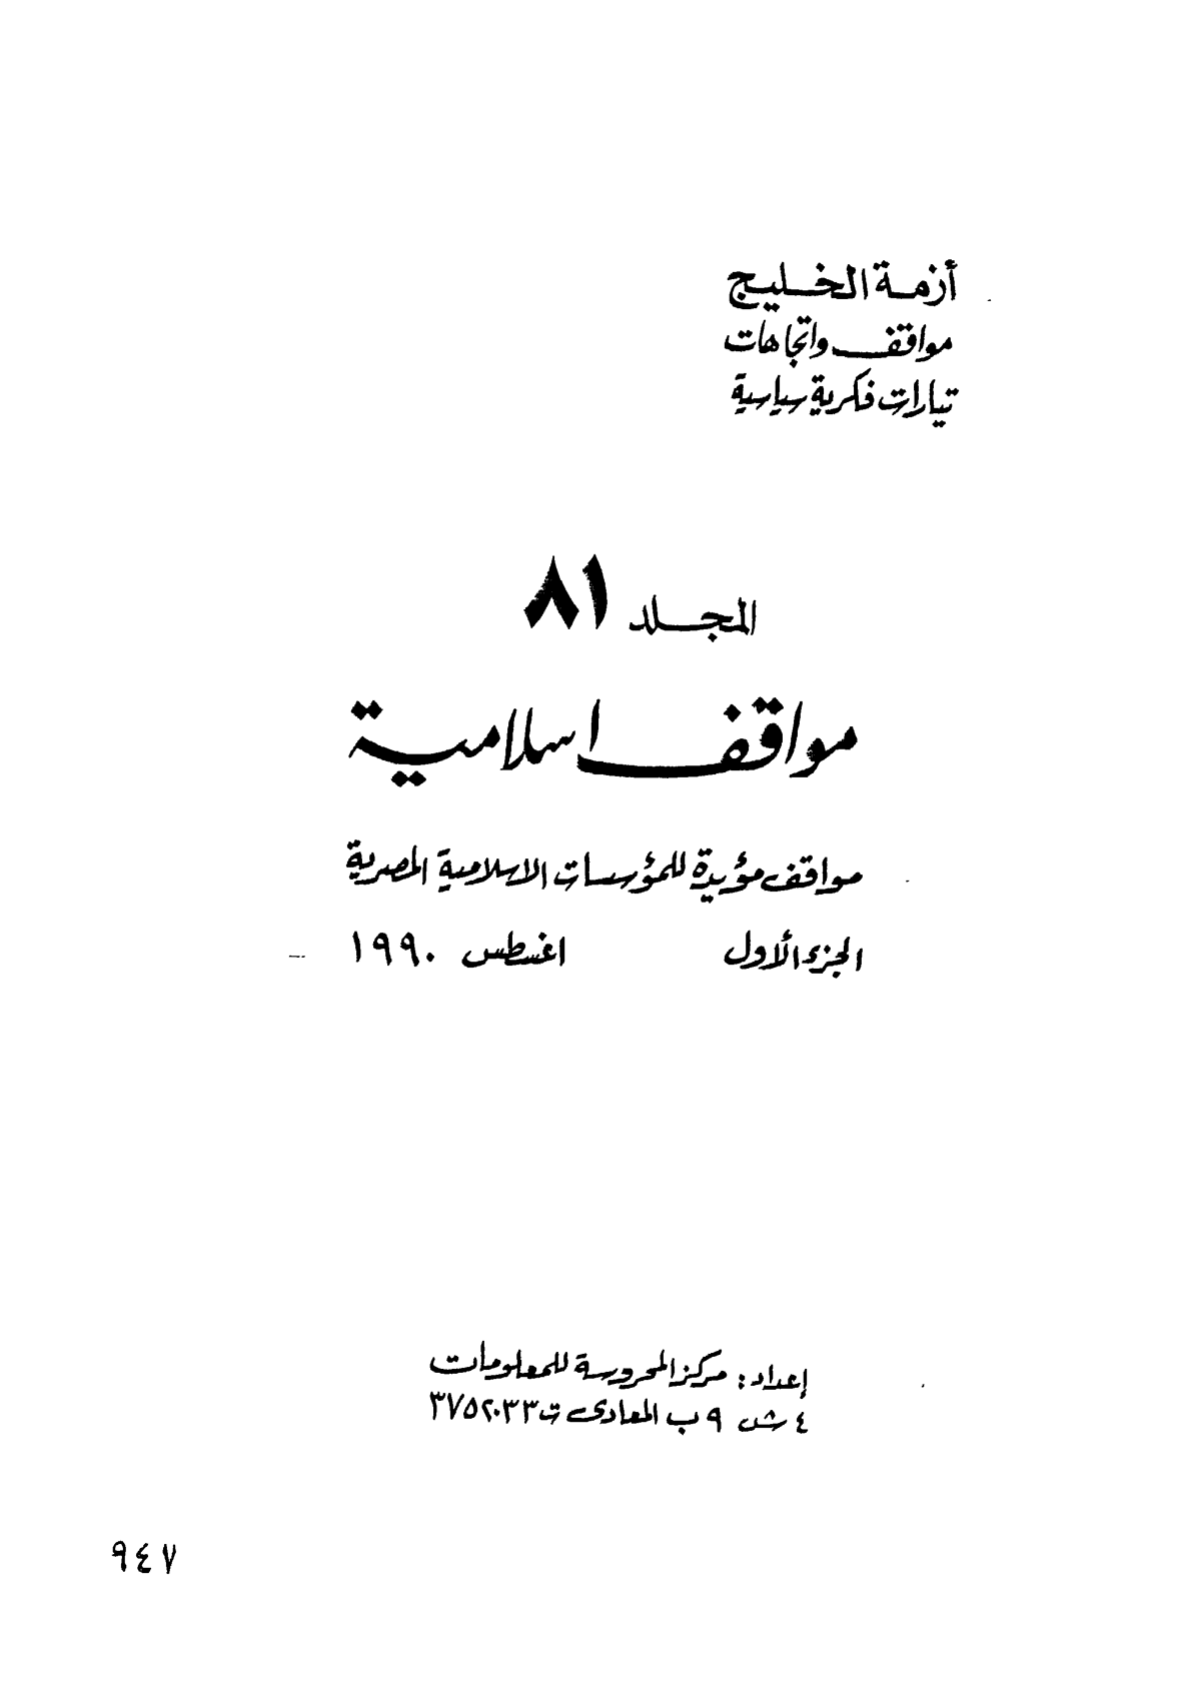 أزمة الخليج
مواقف واتجاهات
تيارات فكرية سياسية
المجلد ٨١
مواقف اسلامية
مواقف مؤيدة للمؤسسات الاسلامية المصرية
الجزء الأول اغسطس ١٩٩٠
إعداد: مركز المحروسة للمعلومات
٤ ش ٩ ب المعادى ت ٣٧٥٢٠٣٣
٩٤٧